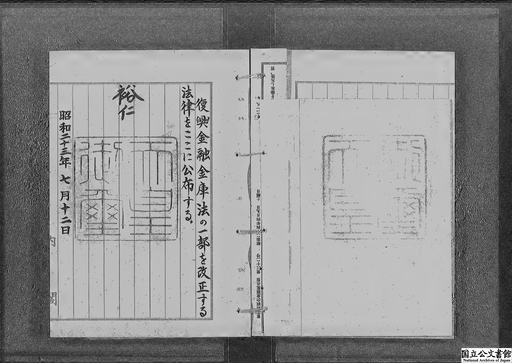 復興金融金庫法の一部を改正する
法律をここに公布する。
裕仁
天皇
御璽
昭和二十三年 七月十二日
内閣
国立公文書館
National Archives of Japan